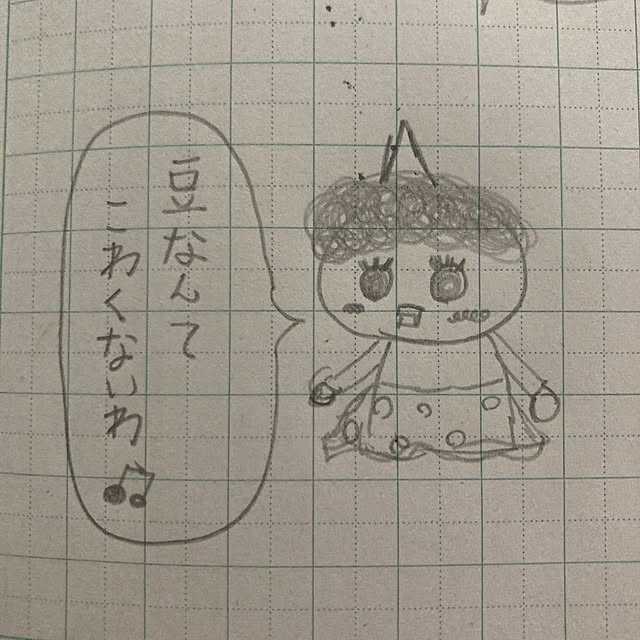 豆なんて
こわくないわ♫